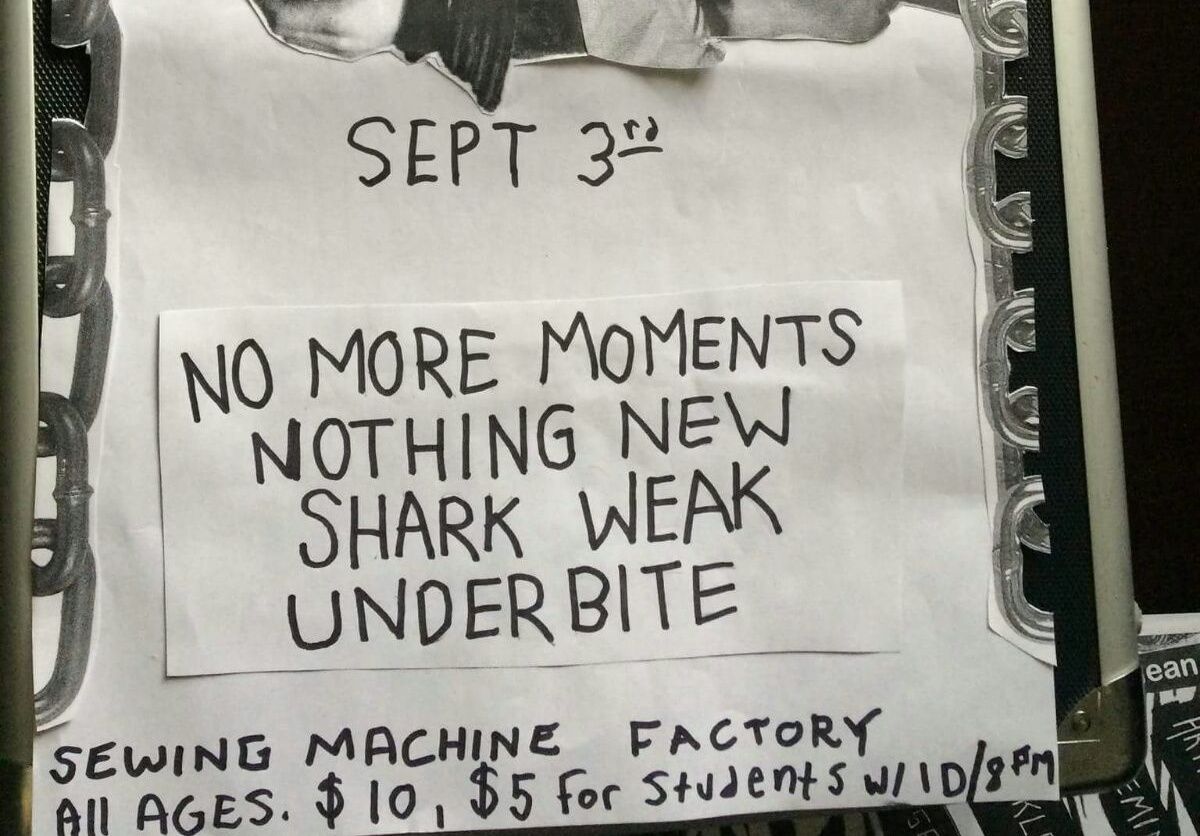 SEPT 3rd
NO MORE MOMENTS
NOTHING NEW
SHARK WEAK
UNDERBITE
SEWING MACHINE FACTORY
All AGES. $10, $5 For Students w/ ID/8PM
ean